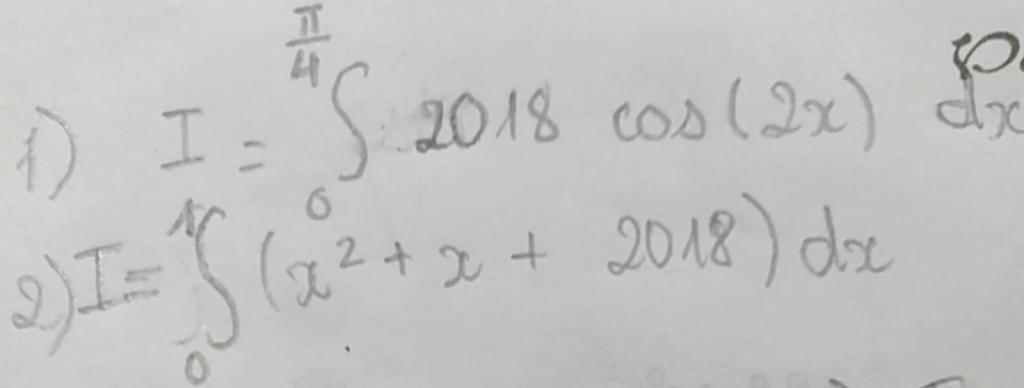 1) I = ∫₀^{π/4} 2018 cos(2x) dx
2) I = ∫₀^{1} (x² + x + 2018) dx